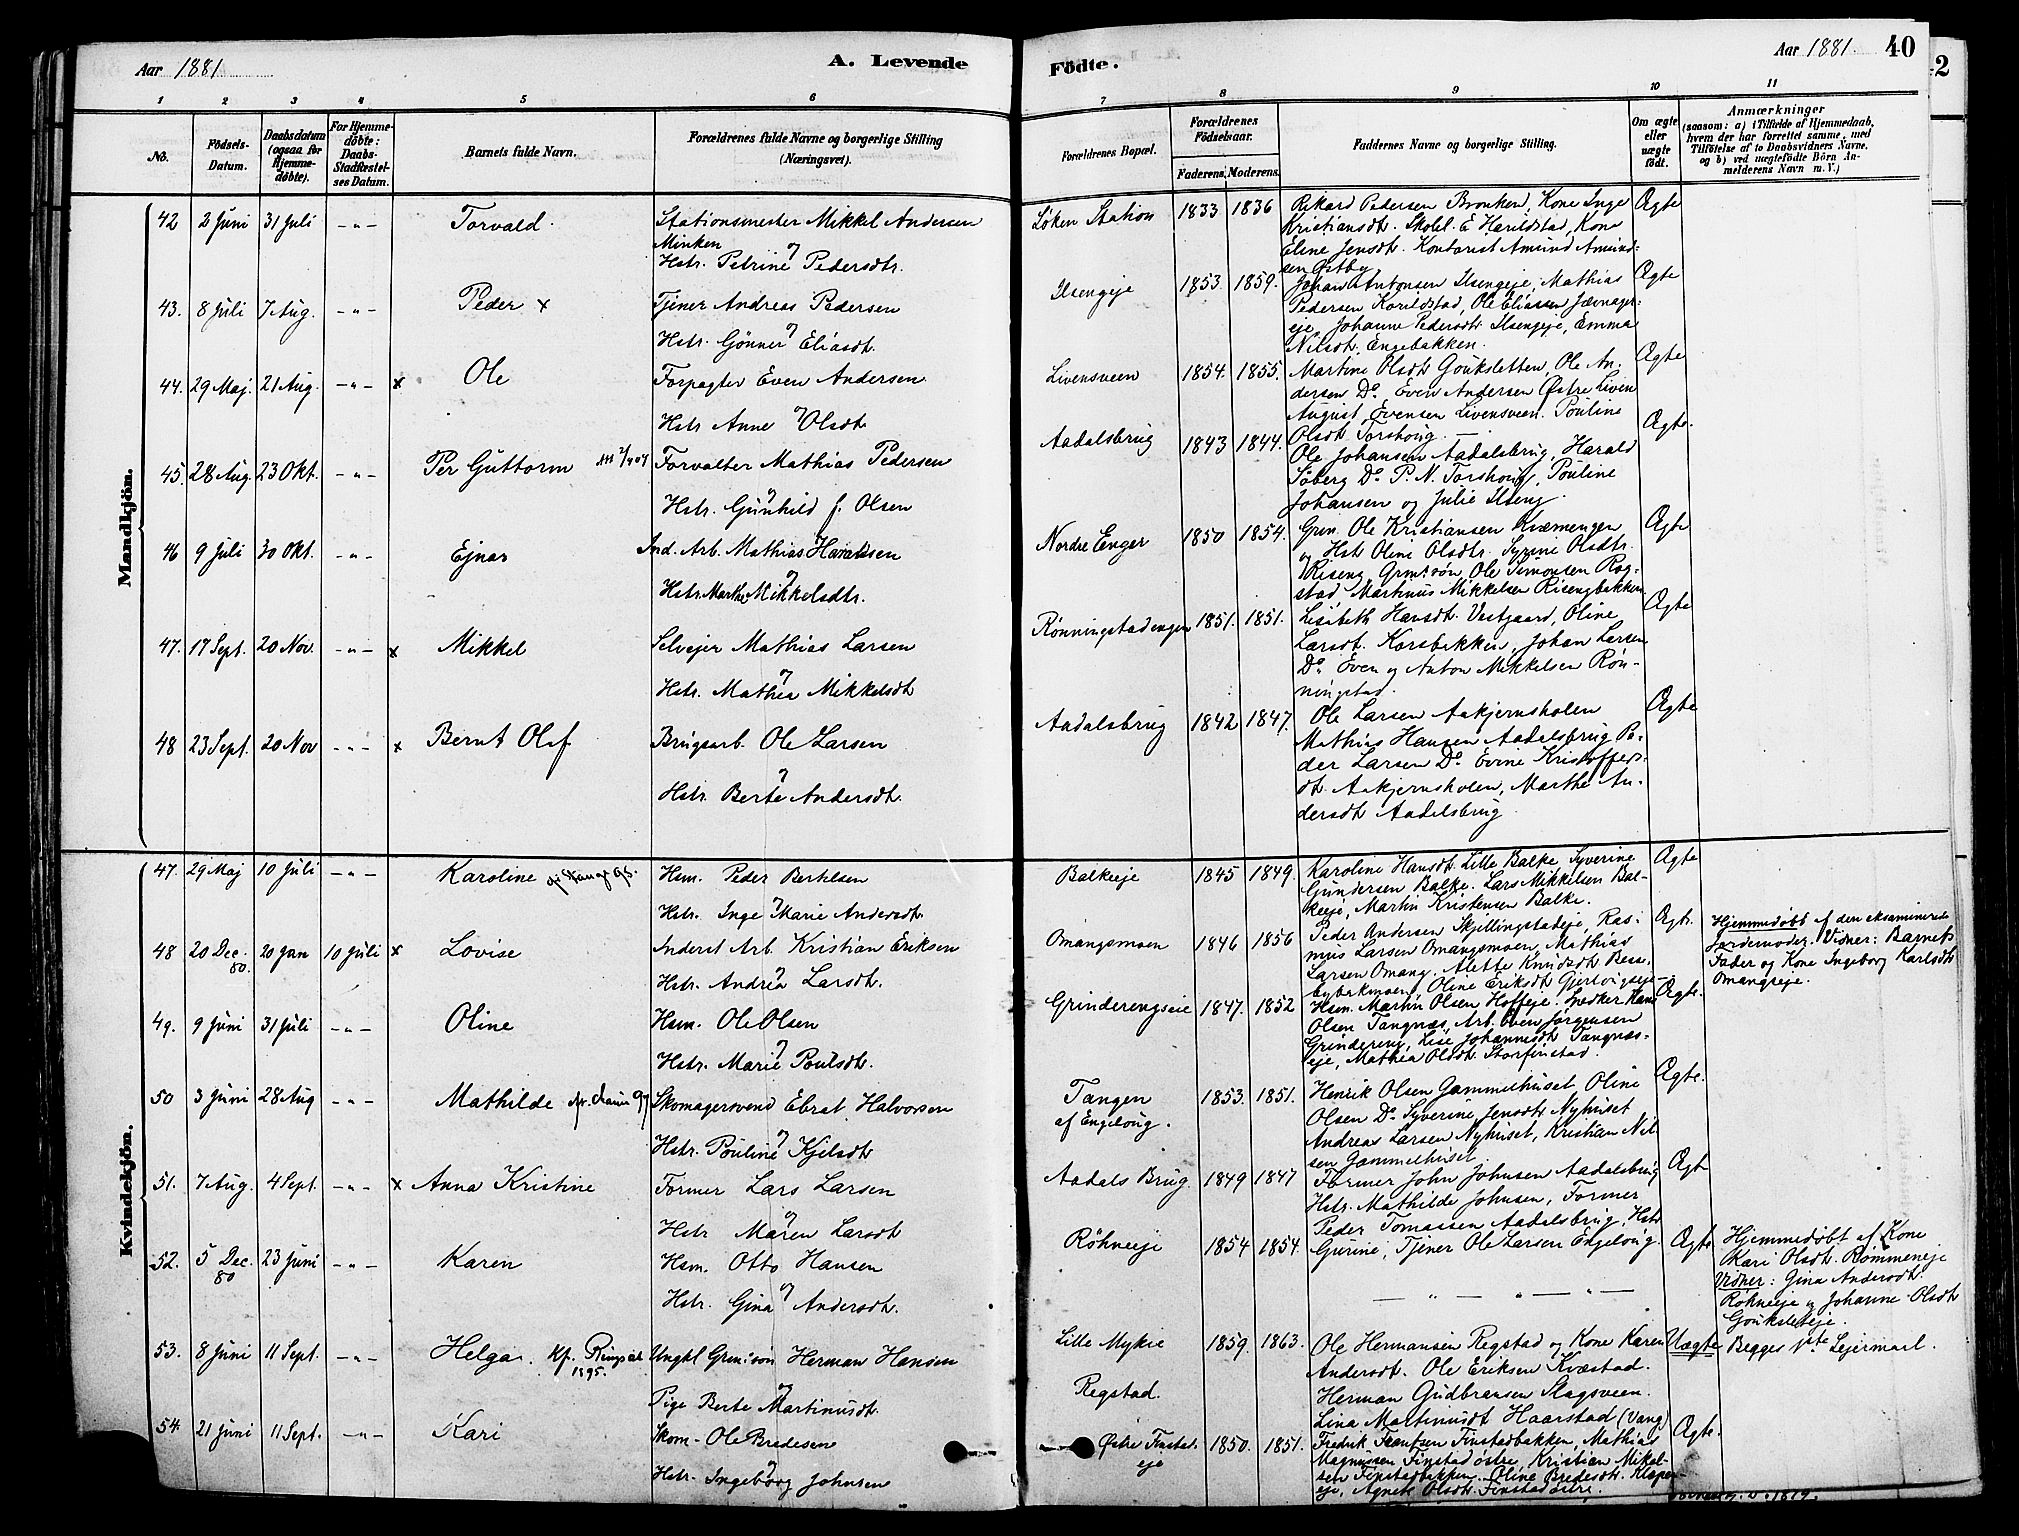 Aar 1881
A. Levende
Födte.
Aar 1881
40
2
1 2 3 4 5 6
7 8 9 10 11
No.
Födsels-
Datum.
Daabsdatum
(ogsaa for
Hjemme-
döbte).
For Hjemme-
döbte:
Daabs-
Stadfæstel-
ses Datum.
Barnets fulde Navn.
Forældrenes fulde Navne og borgerlige Stilling
(Næringsvei).
Forældrenes Bopæl.
Forældrenes
Födselsaar.
Faderens. Moderens.
Faddernes Navne og borgerlige Stilling.
Om ægte
eller
uægte
födt.
Anmærkninger
(saasom: a) i Tilfælde af Hjemmedaab,
hvem der har forrettet samme, med
Tilföielse af to Daabsvidners Navne,
og b) ved uægtefödte Börn An-
melderens Navn m. V.)
Mandkjön.
42 2 Juni 31 Juli -"- Torvald. Stationsmester Mikkel Andersen
Minken
og
Hstr. Petrine Pedersdtr.
Løken Station 1833 1836 Rikard Pedersen Brouken, Kone Inge
Kristiansdt. Skolel. E Harildstad, Kone
Eline Jensdt. Kontorist Amund Amund-
sen Østby
Ægte
43. 8 Juli 7 Aug. -"- Peder x Tjener Andreas Pedersen
og
Hstr. Gønner Eliasdt.
Ilsengeje 1853. 1859. Johan Antonsen Ilsengeje, Mathias
Pedersen Korildstad, Ole Eliassen Jærnsgr-
eje, Johanne Pedersdtr Ilsengeje, Emma
Nilsdt. Engebakken.
Ægte
44. 29 Maj. 21 Aug. -"- x Ole Forpagter Even Andersen
og
Hstr Anne Olsdt.
Livensveen 1854. 1855. Martine Olsdt Goukstetten, Ole An-
dersen Do. Even Andersen Østre Liven
August Evensen Livensveen. Pouline
Olsdt Torshoug.
Ægte
45. 28 Aug. 23 Okt. -"- Per Guttorm Forvalter Mathias Pedersen
og
Hstr. Gunhild f. Olsen
Aadalsbrug 1843 1844. Ole Johansen Aadalsbrug, Harald
Soberg Do P. N. Torshoug, Pouline
Johansen og Julie Ilseng.
Ægte.
46 9 Juli 30 Okt. -"- Ejnar Ind. Arb. Mathias Hansen
og
Hstr. Marthe Mikkelsdtr.
Nordre Enger 1850 1854. Grm. Ole Kristiansen Kvæmengen
og Hstr Oline Olsdtr. Syrine Olsdtr.
Riseng, Grmssøn, Ole Simonsen Rog-
stad Martinus Mikkelsen Risengbakken
Ægte
47. 17 Sept. 20 Nov. -"- x Mikkel Selvejer Mathias Larsen
og
Hstr. Mathea Mikkelsdt
Rønningstadengen 1851. 1851. Lisabeth Hansdt. Vestgaard, Oline
Larsdt. Korsbakken, Johan Larsen
Do. Even og Anton Mikkelsen Røn-
ningstad.
Ægte
48 23 Sept. 20 Nov -"- x Bernt Olaf Brugsarb. Ole Larsen
og
Hstr. Berte Andersdt.
Aadalsbrug 1842 1847. Ole Larsen Aakjernsholen
Mathias Hansen Aadalsbrug Pe-
der Larsen Do. Evine Kristoffers-
dt. Aakjernsholen, Marthe An-
dersdt Aadalsbrug
Ægte
Kvindekjön.
47. 29 Maj 10 Juli -"- Karoline Hsm. Peder Bertelsen
og
Hstr. Inge Marie Andersdt.
Balkeeje 1845 1849. Karoline Hansdt. Lille Balke, Syverine
Gundersen Balke. Lars Mikkelsen Bal-
keeje, Martin Kristensen Balke.
Ægte
48 20 Dec. 80. 20 Jan 10 Juli x Lovise Inderst Arb. Kristian Eriksen
og
Hstr. Andrea Larsdt.
Omangsmoen 1846 1856 Peder Andersen Skjellingstadeje, Ras-
mus Larsen Omangsmoen, Mathias
Larsen Omang. Alette Knudsdt Besse-
bybakmoen, Oline Eriksdt
Ægt.
Hjemmedøbt af den eksaminerede
Jordemoder. Vidner: Barnets
Fader og Kone Ingeborg Karlsdt
Omangseje.
49. 9 Juni 31 Juli -"- Oline Hsm. Ole Olsen
og
Hstr. Marie Poulsdt.
Grinderengseie 1847. 1852 Hsm. Martin Olsen Hoffeje. Snedker Hans
Olsen Tangnæs, Arb. Even Jørgensen
Grindereng, Lise Johannesdt Tangnæs-
eje, Mathea Olsdt. Storfinstad.
Ægte.
50 3 Juni 28 Aug -"- Mathilde Skomagersvend Ebrat Halvorsen
og
Hstr. Pouline Kjelsdt.
Tangen
af Engeloug.
1853. 1851. Henrik Olsen Gammelhuset, Oline
Olsen Do. Syverine Jensdtr Nyhuset
Andreas Larsen Nyhuset, Kristian Nil-
sen Gammelhuset
Ægte.
51. 7 Aug. 4 Sept. -"- x Anna Kristine Former Lars Larsen
og
Hstr Maren Larsdt
Aadals Brug 1849 1847 Former John Johnsen Aadalsbrug
Hstr. Mathilde Johnsen, Former
Peder Tomassen Aadalsbrug, Hstr
Gurine, Tjener Ole Larsen Engeloug.
Ægt
52. 5 Dec. 80 23 Juni -"- Karen Hsm. Otto Hansen
og
Hstr. Gina Andersdt.
Røhneeje 1854 1854. — " — " — " —
Ægte
Hjemmedøbt af Kone
Kari Olsdt. Rømmeneje
Vidner: Gina Andersdt.
Røhneeje og Johanne Olsdt
Gouksteteje.
53. 8 Juni 11 Sept. -"- Helga. Kf. Ringsak
1895.
Ungkl Grmssøn Herman Hansen
og
Pige Berte Martinusdt.
Lille Mykie
Regstad.
1859. 1863. Ole Hermansen Regstad og Kone Karen
Andersdt. Ole Eriksen Kvæstad.
Herman Gudbransen Slagsveen.
Lina Martinusdt Haarstad (Vang)
Uægte
Begges 1ste Lejermaal.
54. 21 Juni 11 Sept. -"- Kari Skom. Ole Bredesen
og
Hstr. Ingeborg Johnsen
Østre Finstad-
eje
1850. 1851. Fredrik Frantsen Finstadbakken, Mathias
Magnussen Finstad østre, Kristian Mikel-
sen Finstadbakken. Oline Bredesdt. Klopen-
eje, Agnete Olsdt. Finstad østre.
Ægte.